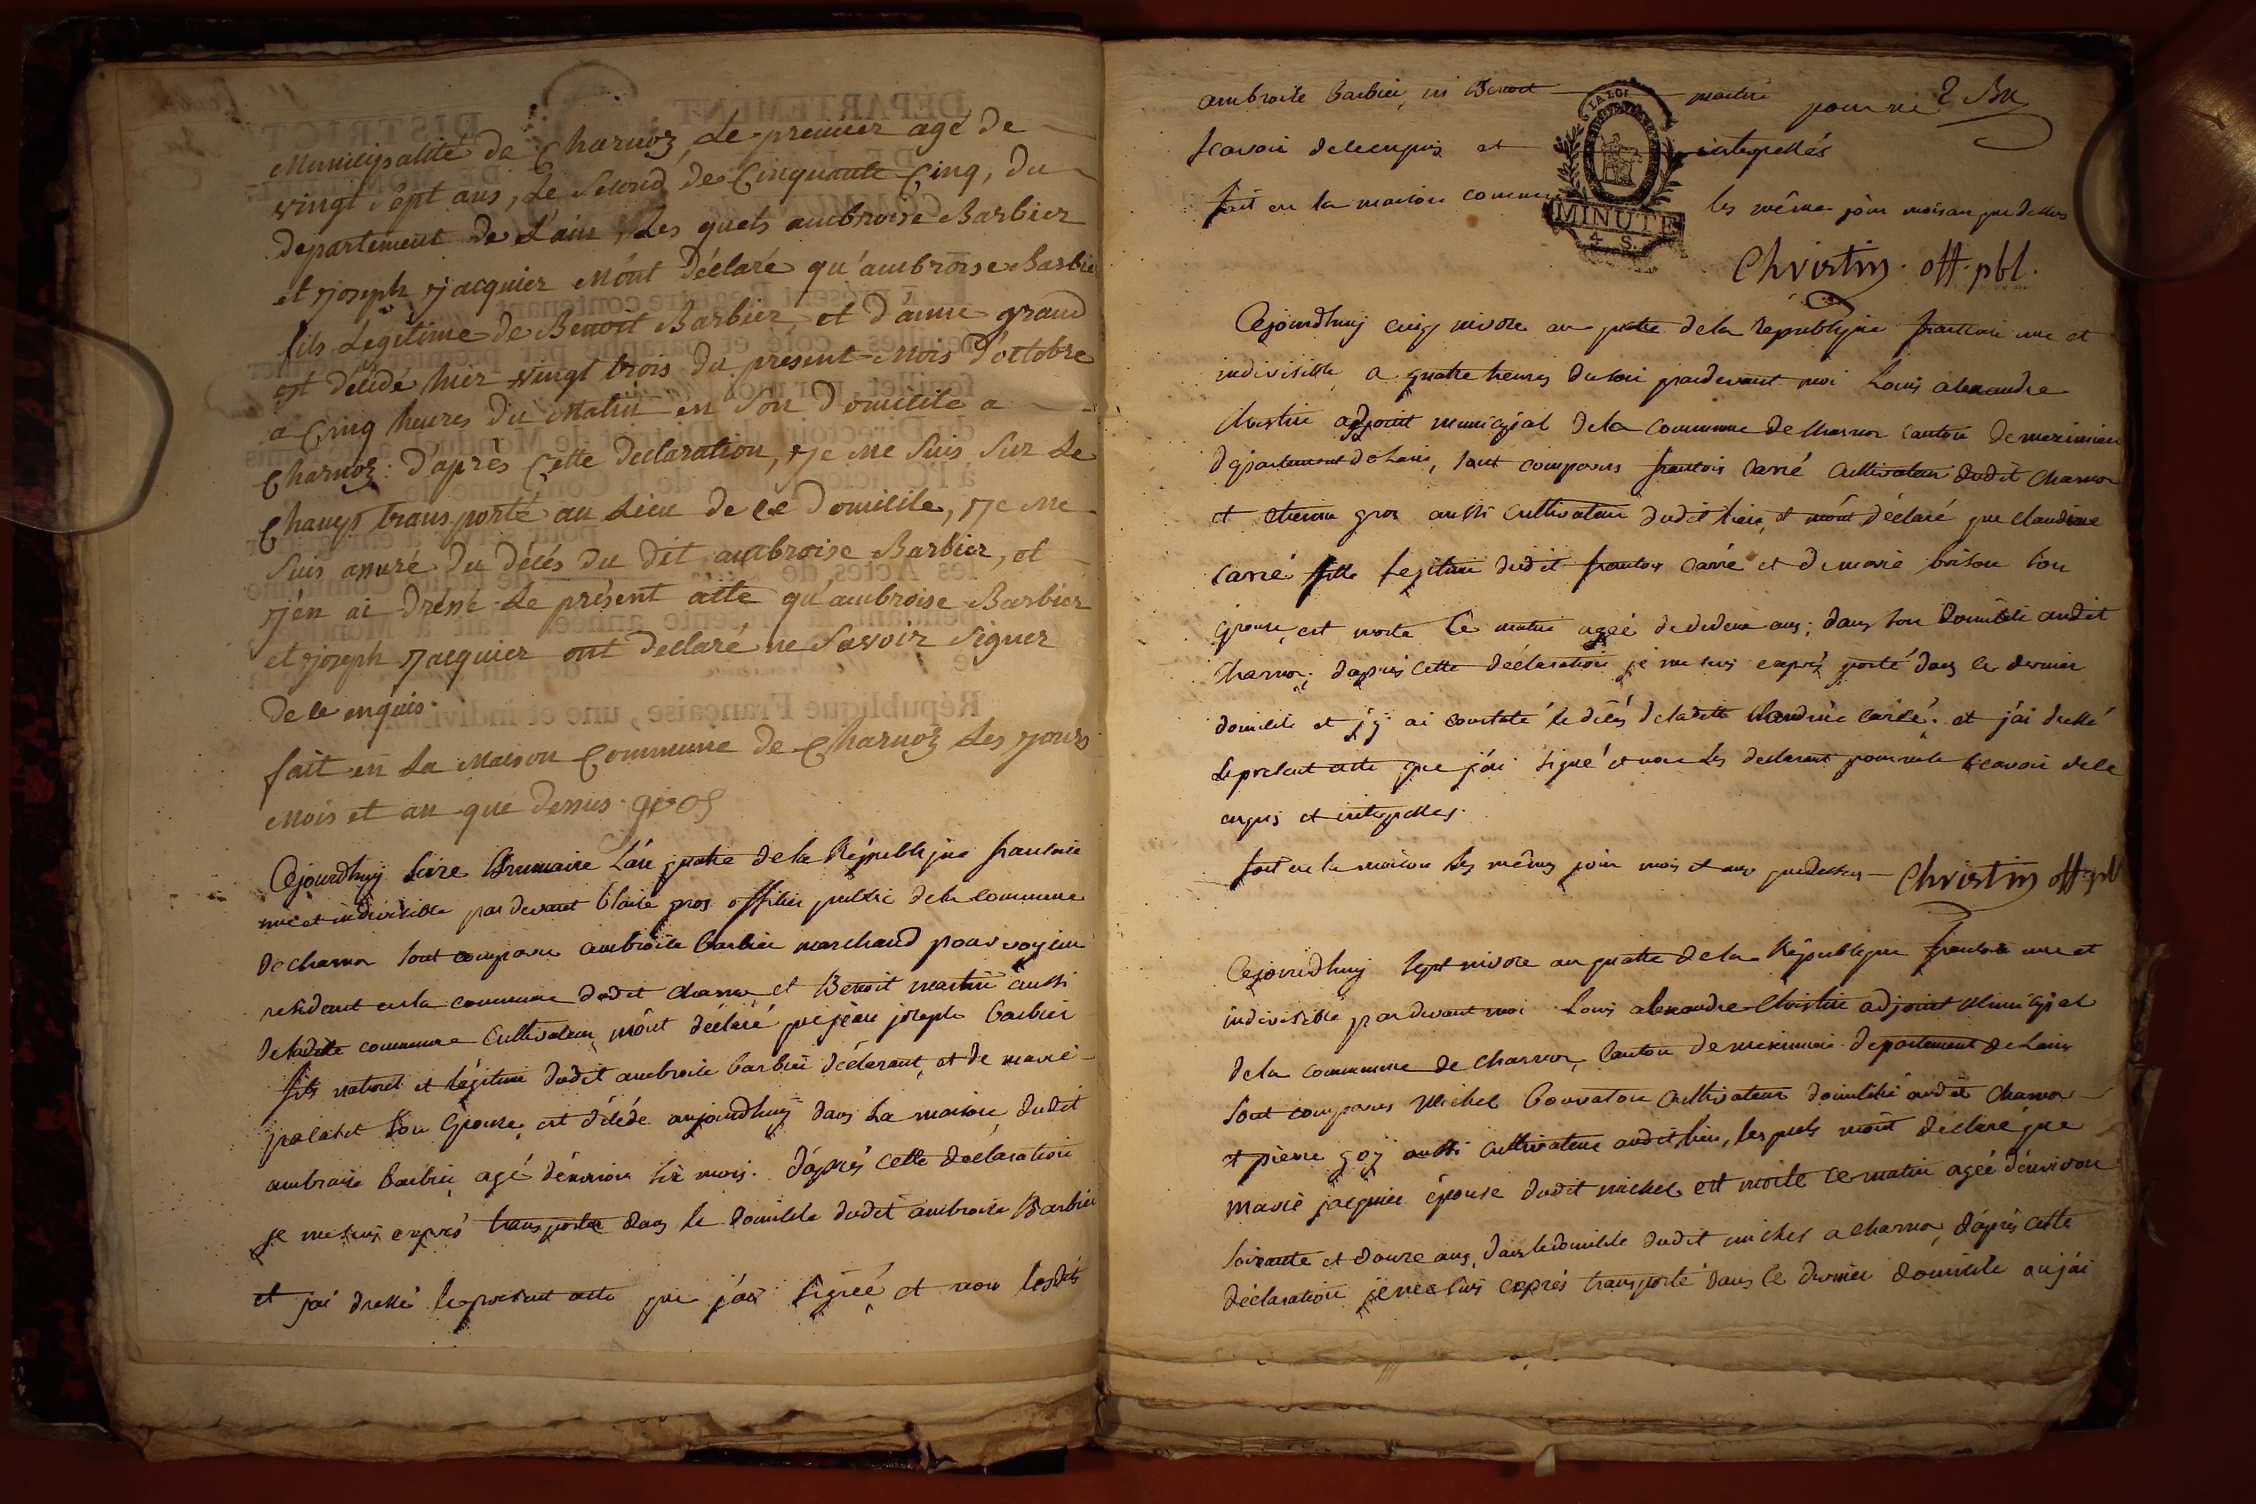 Municipalité de Charnoz, Le premier agé de
vingt Sept ans, Le Second de Cinquante Cinq, du
departement de L'ain, Les quels ambroise Barbier
et joseph jacquier M'ont déclaré qu'ambroise Barbier
fils Légitime de Benoit Barbier et d'anne grand
est décédé hier vingt trois du present Mois d'octobre
a Cinq heures du Matin en Son Domicile a
Charnoz: d'après Cette declaration, je me Suis Sur Le
Champs transporté au Lieu de Ce Domicile, je me
Suis assuré du décés du dit ambroise Barbier, et
j'en ai dréssé Le présent acte qu'ambroise Barbier
et joseph jacquier ont declaré ne Savoir Signer
de ce enquis.
fait en La Maison Commune de Charnoz Les jours
Mois et an que dessus. gros
Cejourdhuy seize Brumaire L'an quatre de la République francaise
une et indivisible par devant blaise gros officier public de la commune
de charnoz sont comparu ambroise barbier marchand
residant en la commune dudit charnoz et Benoit martin aussi
de ladite commune Cultivateur m'ont déclaré que jean joseph barbier
fils naturel et légitime dudit ambroise barbier déclarant, et de marie
son Epouse, est décédé aujourdhuy dans la maison dudit
ambroise barbier agé d'environ six mois. d'après cette déclaration
je me suis exprès transporté dans le domicile dudit ambroise Barbier
et j'ai dressé le présent acte que j'ai signé et non lesdits
ambroise barbier, ni Benoit martin pour ne
scavoir de ce enquis et interpellés
fait en la maison commune les même jour mois an que dessus
LA LOI
MINUTE
4 S.
Christin off. pbl.
Cejourdhuy cinq nivose an quatre de la République francaise une et
indivisible a quatre heures du soir pardevant moi Louis alexandre
Christin adjoint municipal de la commune de charnoz canton de meximieu
département de Lain, sont comparus francois carré cultivateur dudit charnoz
et etienne gros aussi cultivateur dudit lieu, et m'ont déclaré que claudine
carré fille légitime dudit francois carré et de marie brison son
épouse, est morte ce matin agée de ans, dans son domicile audit
charnoz, d'après cette déclaration je me suis exprès porté dans ce dernier
domicile et j'y ai constaté le décés de ladite claudine carré. et j'ai dressé
le présent acte que j'ai signé et non les declarant pour ne scavoir de ce
enquis et interpellés.
fait en la maison les mêmes jour mois et an que dessus Christin off. pbl
Cejourdhuy sept nivose an quatre de la République francaise une et
indivisible par devant moi Louis alexandre Christin adjoint Municipal
de la commune de charnoz, Canton de meximieu département de Lain
sont comparus Michel Bouvaton cultivateur domicilié audit charnoz
et pierre goy aussi cultivateur audit lieu, lesquels m'ont déclaré que
marie jacquier épouse dudit michel est morte ce matin agée d'environ
soixante et douze ans, dans le domicile dudit michel a charnoz, d'après cette
déclaration je me suis exprès transporté dans ce dernier domicile ou j'ai